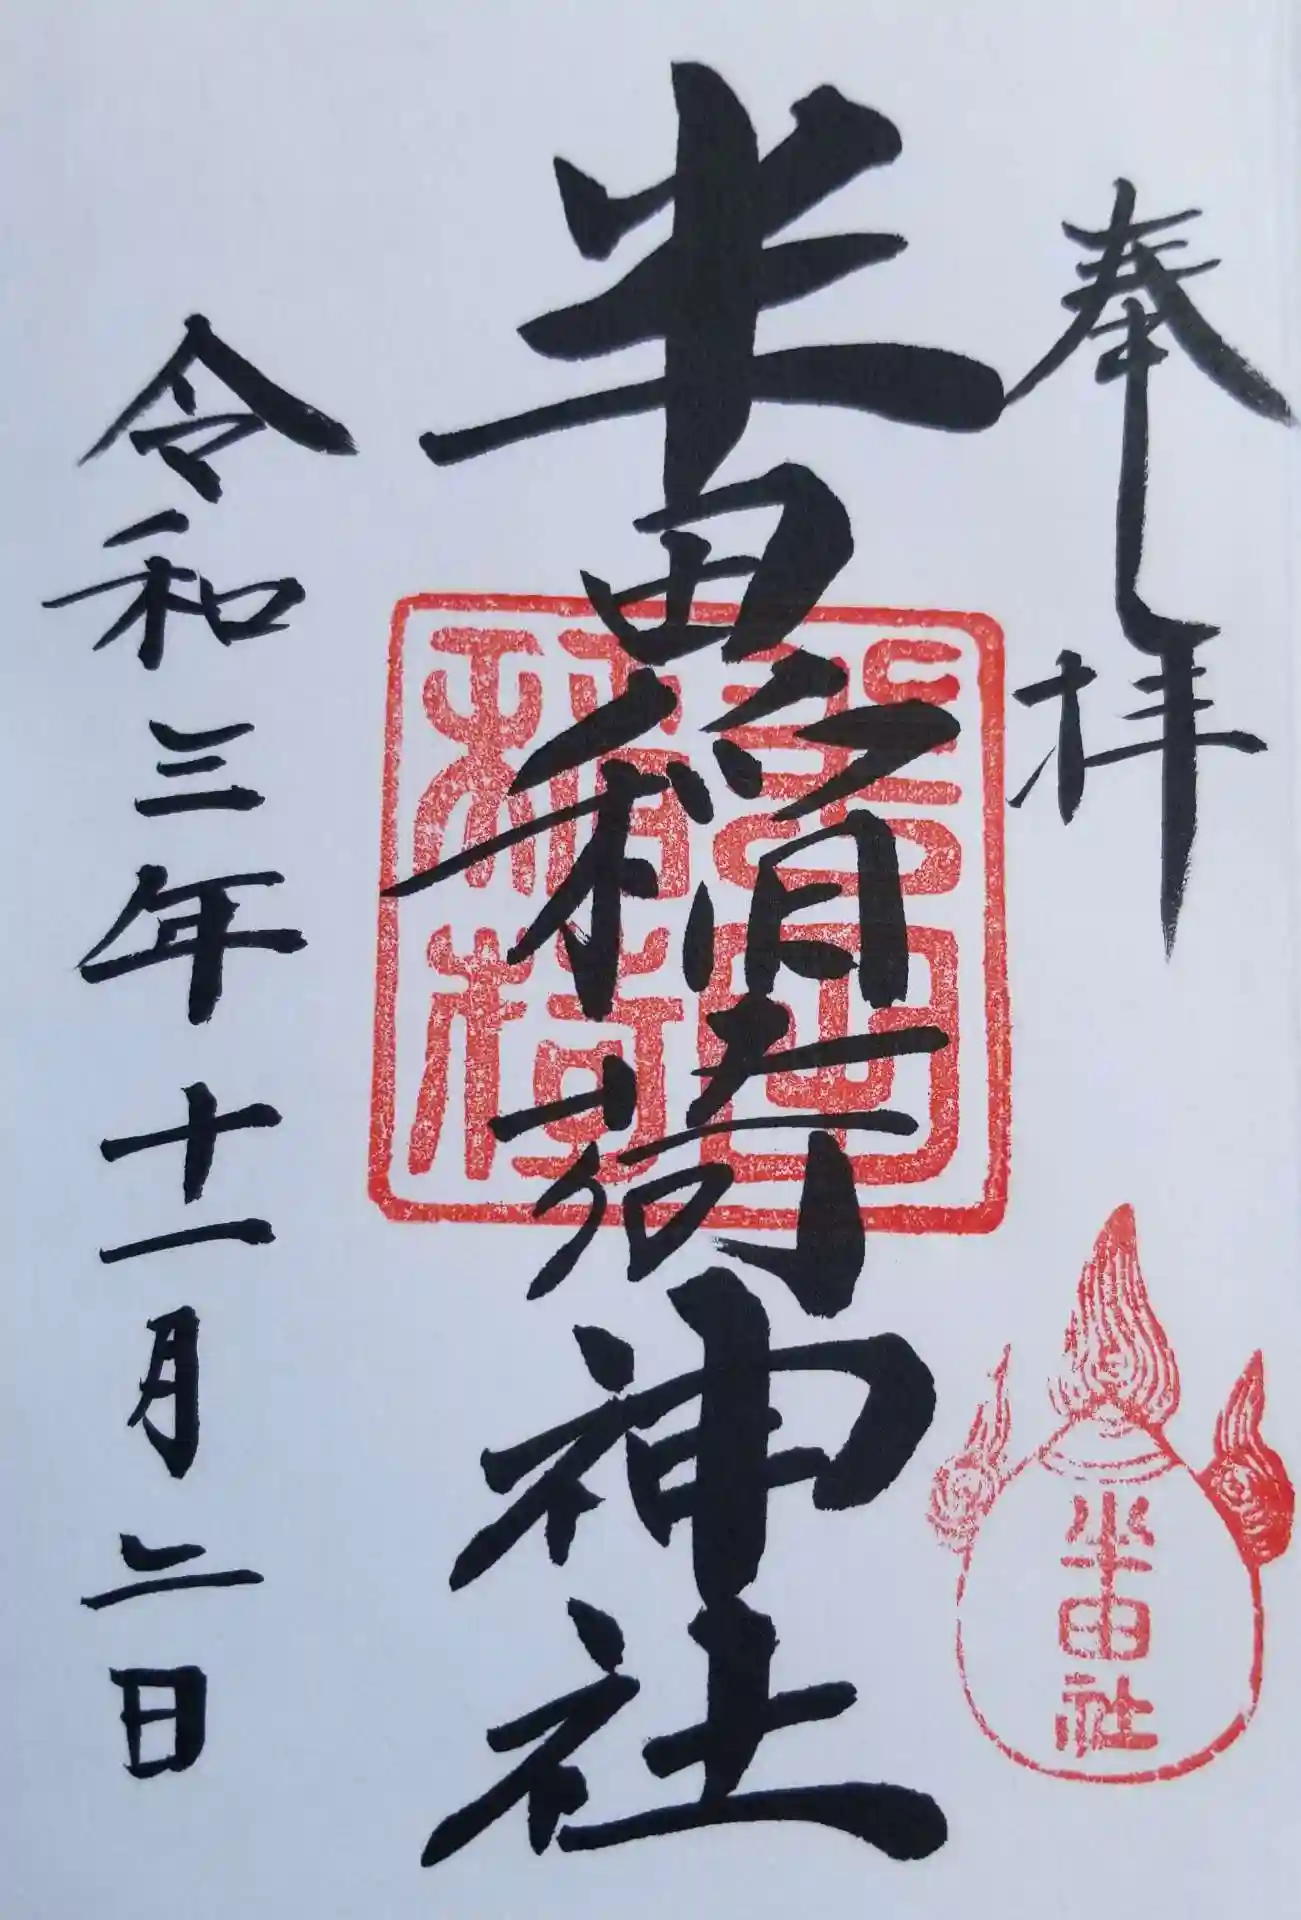 奉拝
半田社
半田稲荷神社
令和三年十一月二日